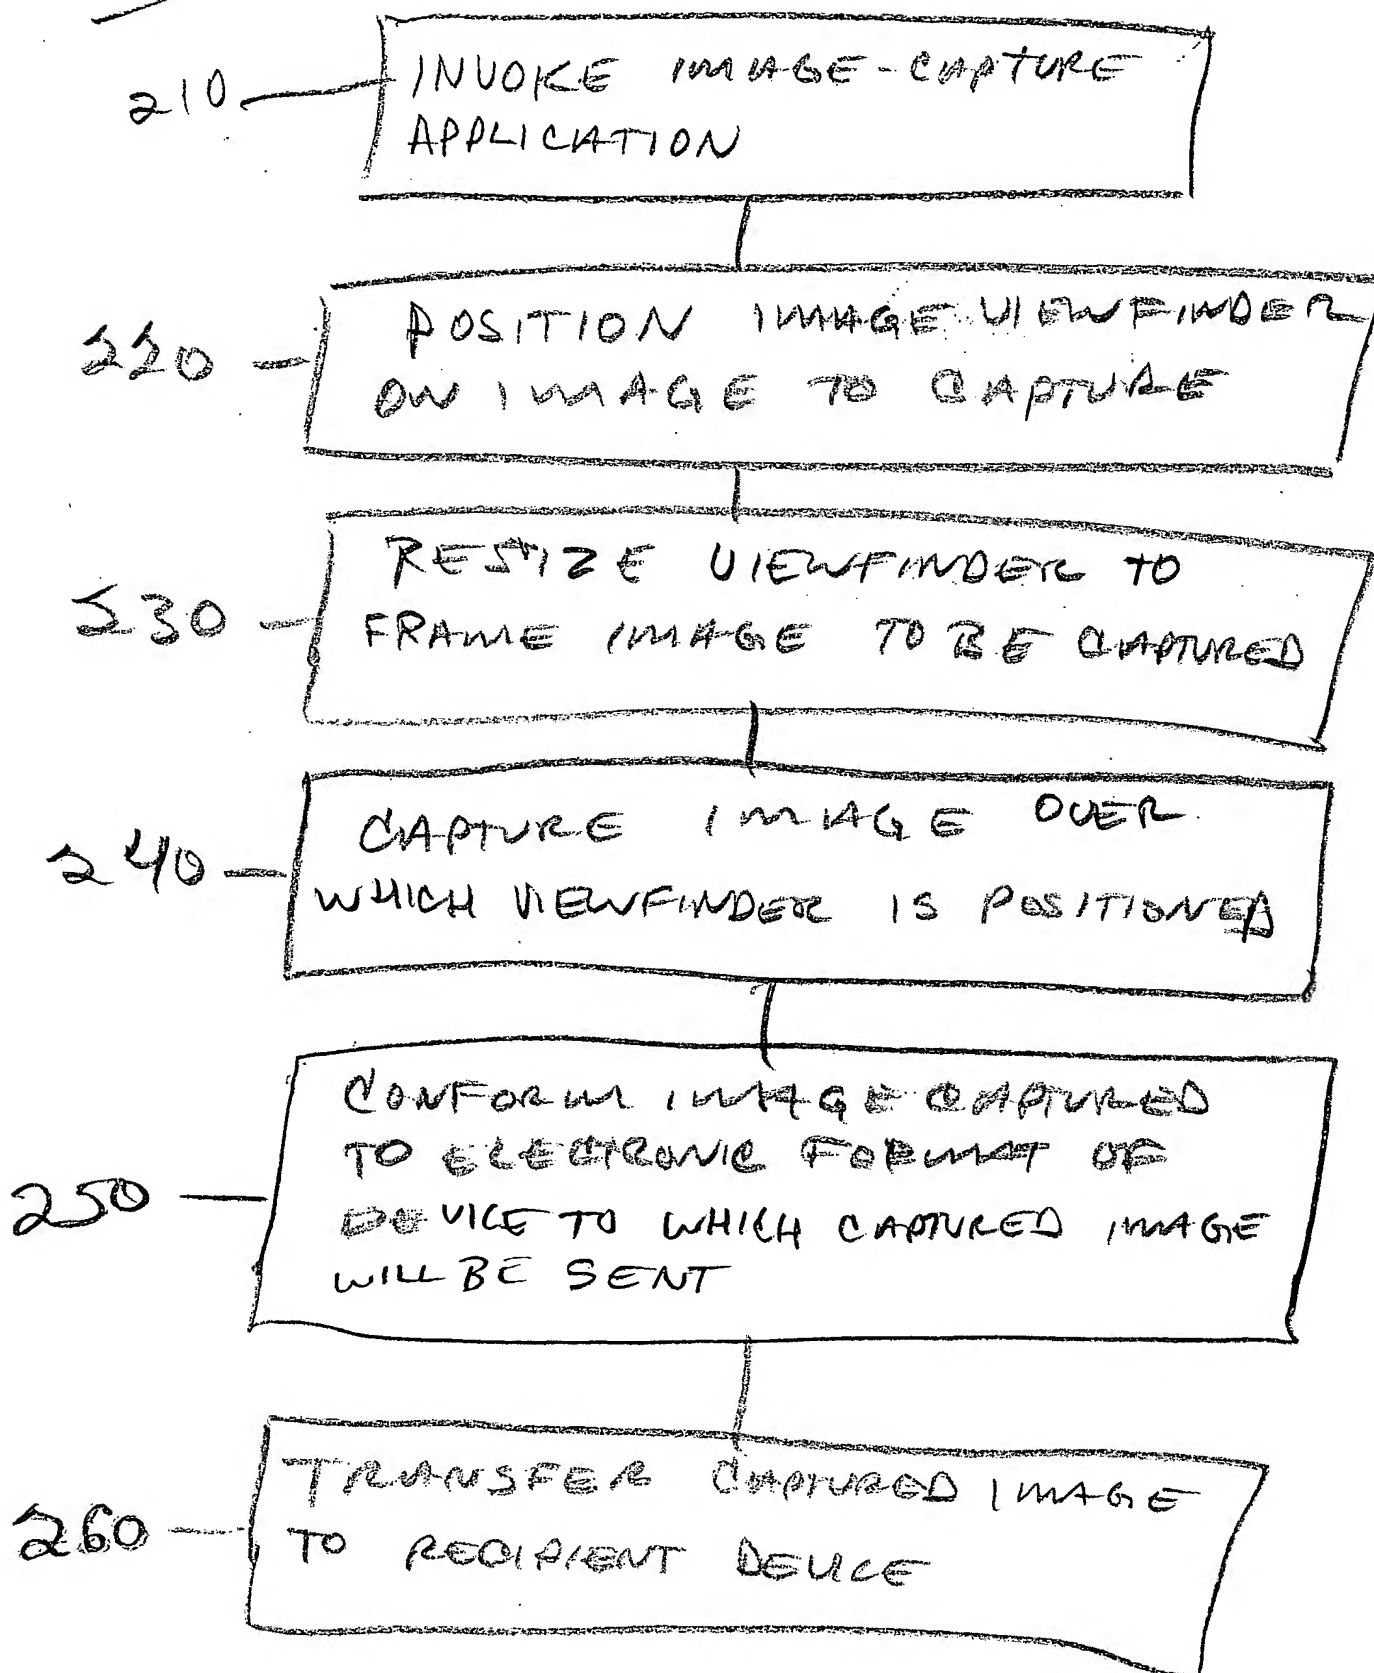 210
INVOKE IMAGE-CAPTURE
APPLICATION
220
POSITION IMAGE VIEWFINDER
ON IMAGE TO CAPTURE
230
RESIZE VIEWFINDER TO
FRAME IMAGE TO BE CAPTURED
240
CAPTURE IMAGE OVER
WHICH VIEWFINDER IS POSITIONED
250
CONFORM IMAGE CAPTURED
TO ELECTRONIC FORMAT OF
DEVICE TO WHICH CAPTURED IMAGE
WILL BE SENT
260
TRANSFER CAPTURED IMAGE
TO RECIPIENT DEVICE